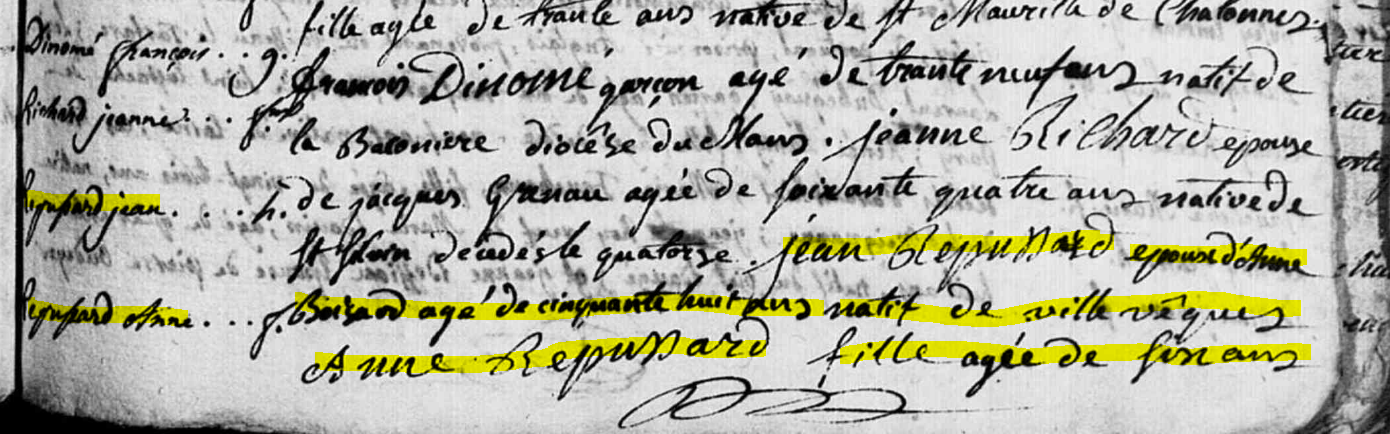 fille agée de trante ans native de st Maurille de Chalonnes.
Dinomé françois . . g. francois Dinomé garçon agé de trante neuf ans natif de
Richard jeanne . . . la Baconiere diocése du Mans . jeanne Richard epouse
Repussard jean . . . h. de jacques Granau agée de soixante quatre ans native de
st decedés le quatorze . jean Repussard epoux d'Anne
Repussard Anne . . . f. Boizard agé de cinquante huit ans natif de ville vêques
Anne Repussard fille agée de six ans